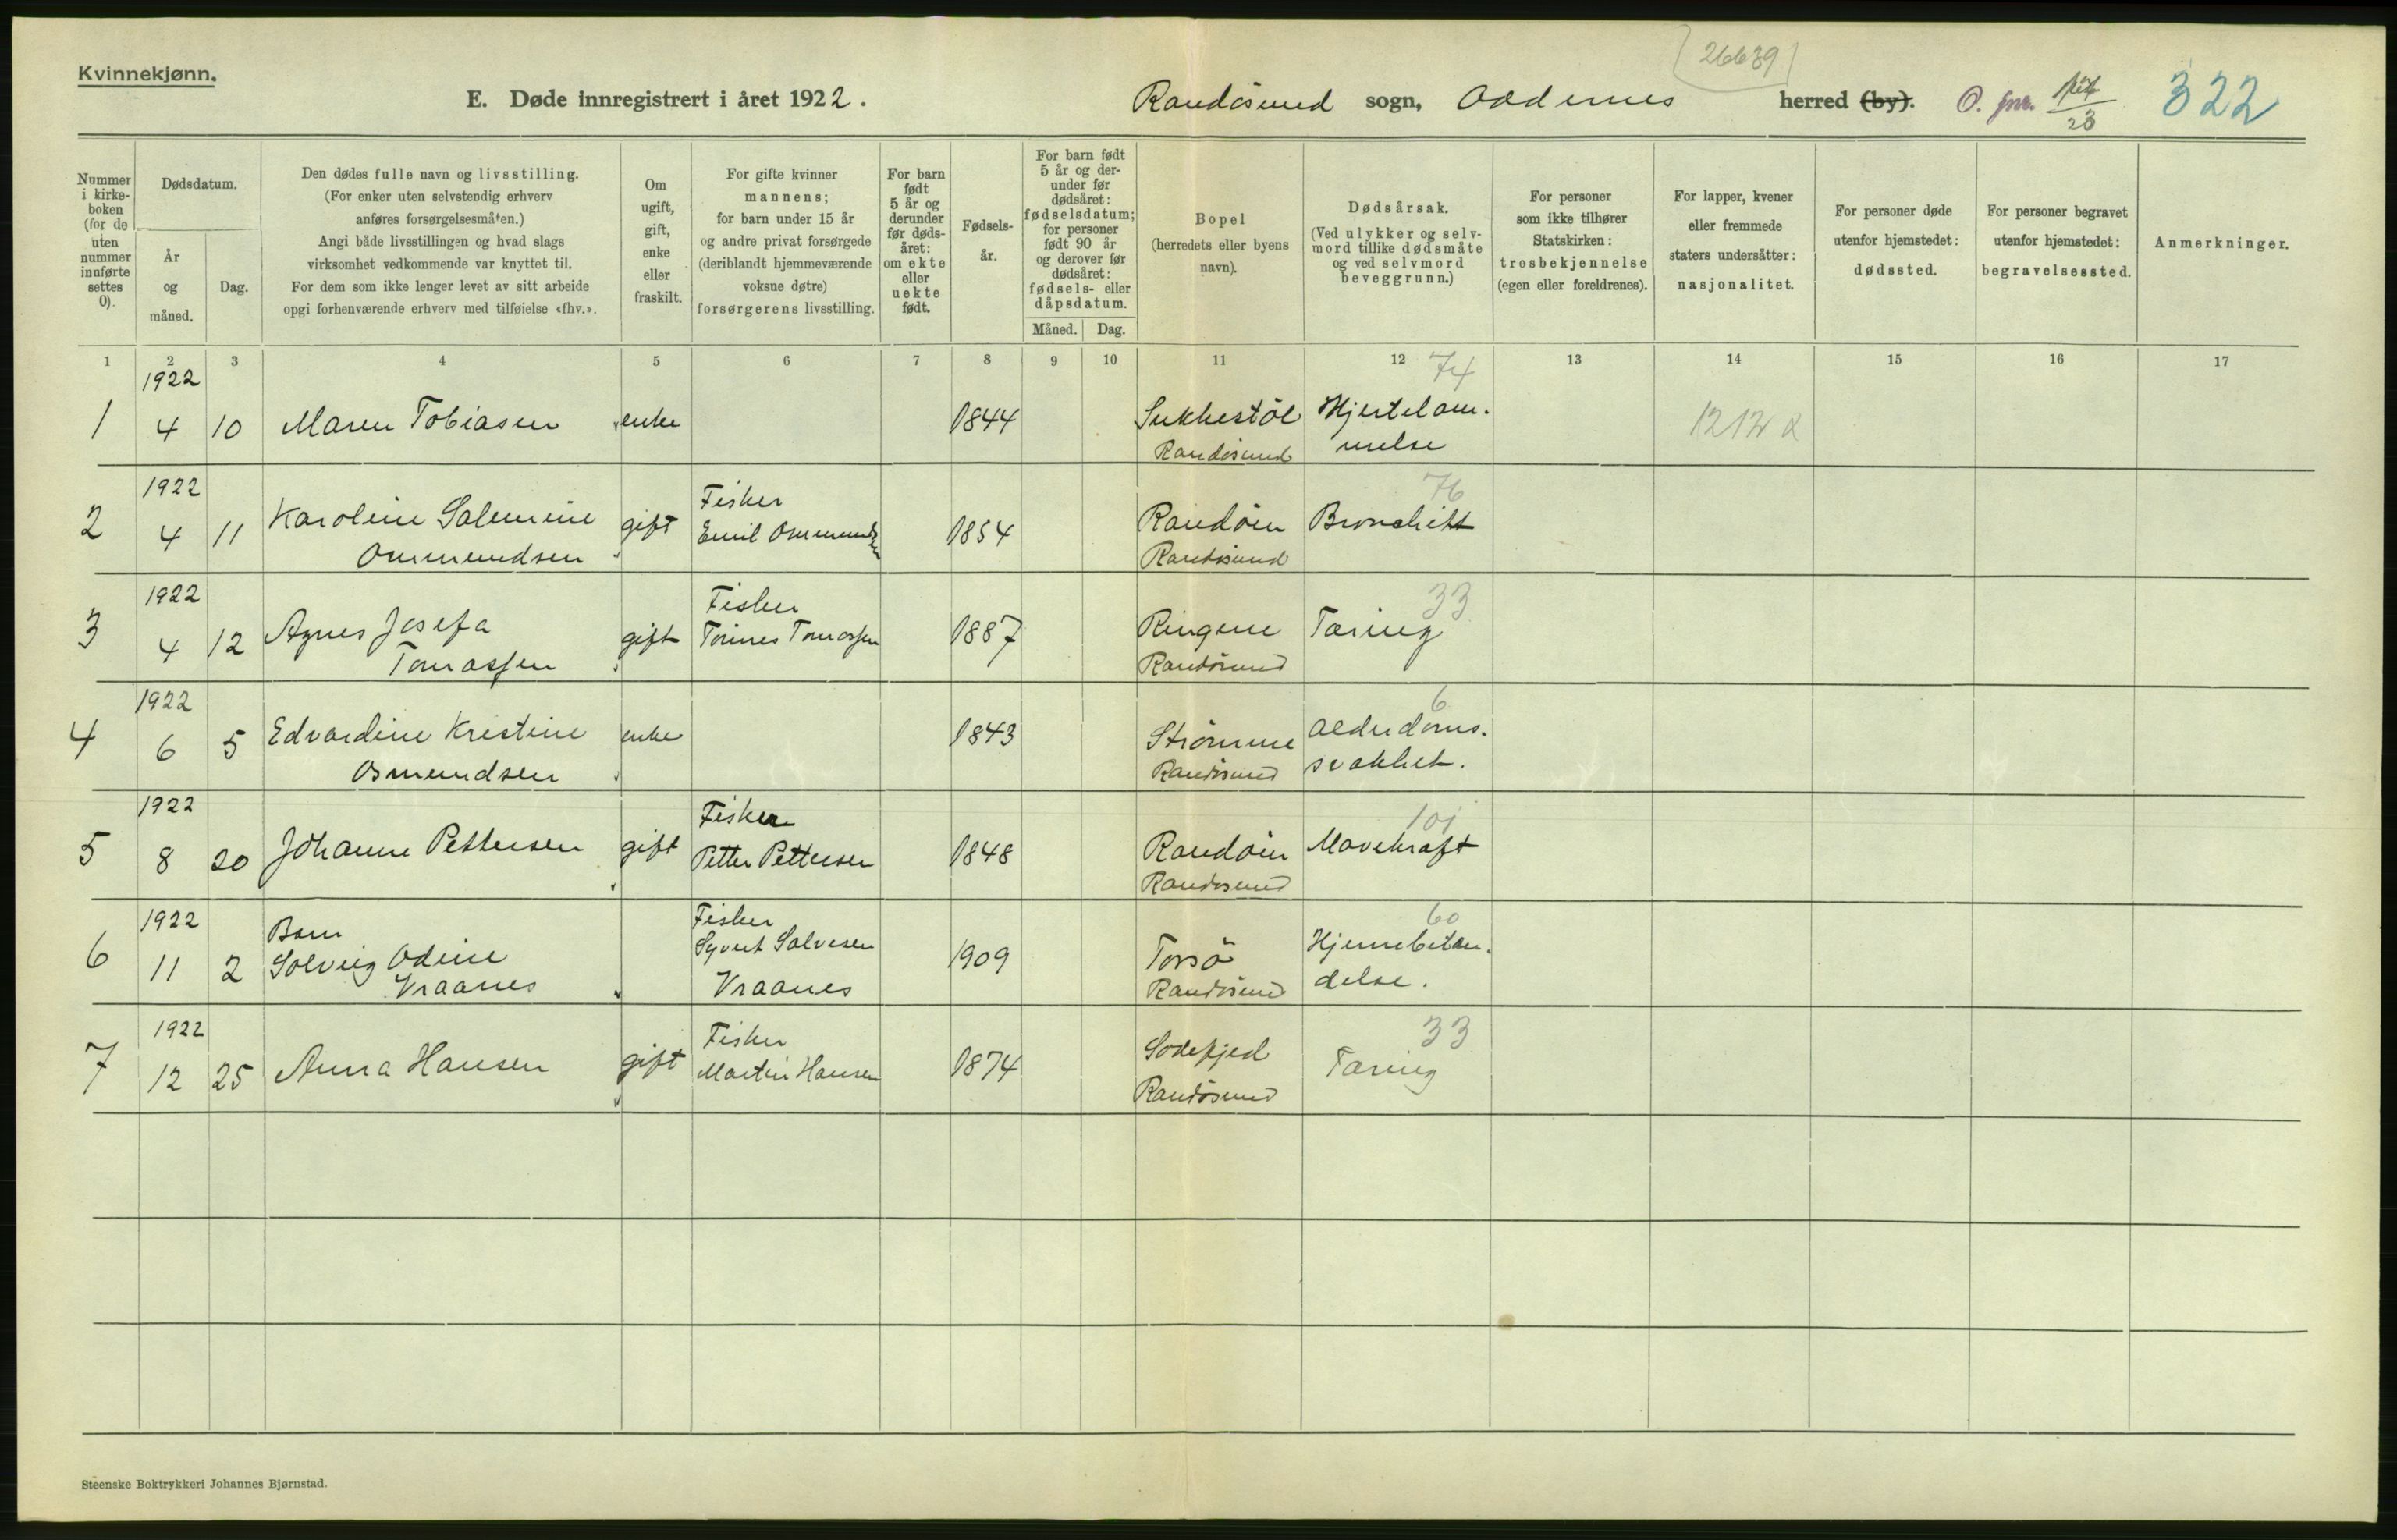 Kvinnekjønn.
26639
E. Døde innregistrert i året 1922. Randøsund sogn, Oddernes herred (by). 322
Nummer i kirke-boken (for de uten nummer innførte settes 0).
Dødsdatum.
År og måned.
Dag.
Den dødes fulle navn og livsstilling.
(For enker uten selvstendig erhverv
anføres forsørgelsesmåten.)
Angi både livsstillingen og hvad slags
virksomhet vedkommende var knyttet til.
For dem som ikke lenger levet av sitt arbeide
opgi forhenværende erhverv med tilføielse «fhv.».
Om ugift, gift, enke eller fraskilt.
For gifte kvinner
mannens;
for barn under 15 år
og andre privat forsørgede
(deriblandt hjemmeværende
voksne døtre)
forsørgerens livsstilling.
For barn født 5 år og derunder før døds-året: om ekte eller uekte født.
Fødsels-år.
For barn født 5 år og der-under før dødsåret: fødselsdatum; for personer født 90 år og derover før dødsåret: fødsels- eller dåpsdatum.
Måned. Dag.
Bopel
(herredets eller byens
navn).
Dødsårsak.
(Ved ulykker og selv-
mord tillike dødsmåte
og ved selvmord
beveggrunn.)
For personer
som ikke tilhører
Statskirken:
trosbekjennelse
(egen eller foreldrenes).
For lapper, kvener
eller fremmede
staters undersåtter:
nasjonalitet.
For personer døde
utenfor hjemstedet:
dødssted.
For personer begravet
utenfor hjemstedet:
begravelsessted.
Anmerkninger.
1 2 3 4 5 6 7 8 9 10 11 12 13 14 15 16 17
1922 74
1 4 10 Maren Tobiasen enke 1844 Sukkestøl Hjertelam-
Randøsund melse
1922 Fisker 76
2 4 11 Karoline Salemine gift Emil Ommundsen 1854 Randøen Bronchitt
Ommundsen Randøsund
1922 Fisker 33
3 4 12 Agnes Josefa gift Tønnes Tomassen 1887 Ringene Tæring
Tomassen Randøsund
1922 6
4 6 5 Edvardine Kristine enke 1843 Strømme Alderdoms-
Osmundsen Randøsund svakhet.
1922 Fisker 101
5 8 20 Johanne Pettersen gift Petter Pettersen 1848 Randøen Mavekræft
Randøsund
1922 Barn Fisker 60
6 11 2 Solveig Odine Syvert Salvesen 1909 Torsø Hjernebetæn-
Vraanes Vraanes Randøsund delse.
1922 Fisker 33
7 12 25 Anna Hansen gift Martin Hansen 1874 Sodefjed Tæring
Randøsund
Steenske Boktrykkeri Johannes Bjørnstad.